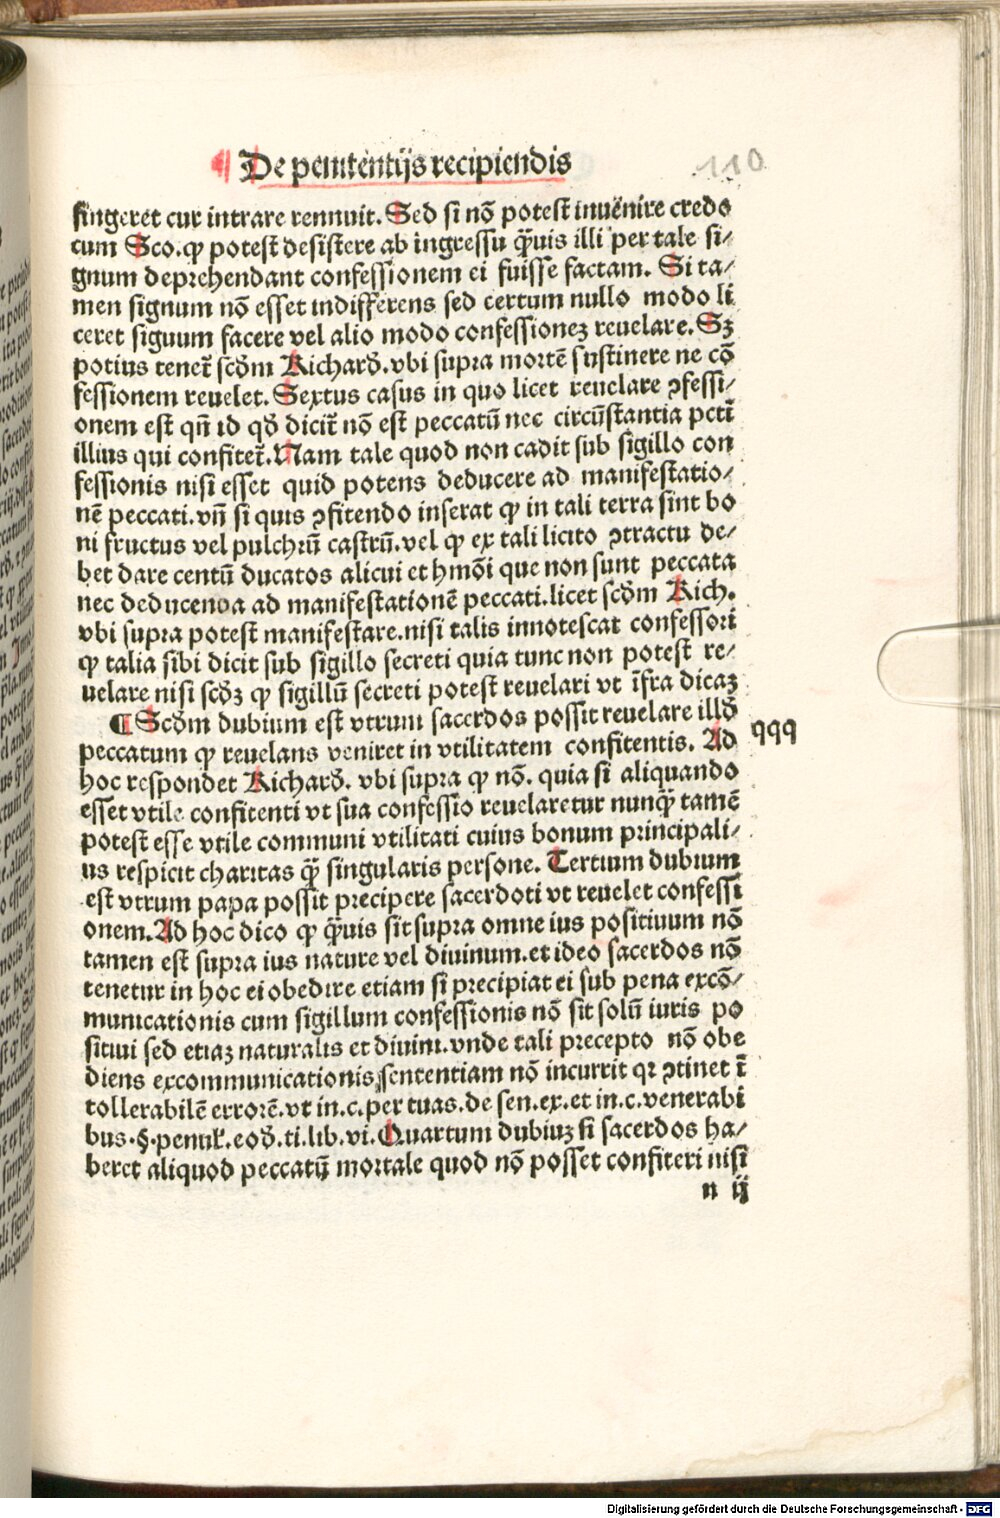 ¶ De penitentijs recipiendis
110
fingeret cur intrare rennuit. Sed si nõ potest inuenire credo
cum Sco. ꝙ potest desistere ab ingressu q̃uis illi per tale si⸗
gnum deprehendant confessionem ei fuisse factam. Si ta⸗
men signum nõ esset indifferens sed certum nullo modo li
ceret siguum facere vel alio modo confessionez reuelare. Sꝫ
potius tenet̃ scd̃m Richard̃. vbi supra mortẽ sustinere ne cõ
fessionem reuelet. Sextus casus in quo licet reuelare ꝯfessi⸗
onem est qñ id qd̃ dicit̃ nõ est peccatũ nec circũstantia pcti
illius qui confitet̃. Nam tale quod non cadit sub sigillo con
fessionis nisi esset quid potens deducere ad manifestatio⸗
nẽ peccati. vñ si quis ꝯfitendo inserat ꝙ in tali terra sint bo
ni fructus vel pulchrũ castrũ. vel ꝙ ex tali licito ꝯtractu de⸗
bet dare centũ ducatos alicui et hmõi que non sunt peccata
nec deducenda ad manifestationẽ peccati. licet scd̃m Rich.
vbi supra potest manifestare. nisi talis innotescat confessori
ꝙ talia sibi dicit sub sigillo secreti quia tunc non potest re⸗
uelare nisi scd̃ꝫ ꝙ sigillũ secreti potest reuelari vt ĩfra dicaꝫ
¶ Scd̃m dubium est vtrum sacerdos possit reuelare illd̃
qqq
peccatum ꝙ reuelans veniret in vtilitatem confitentis. Ad
hoc respondet Richard̃. vbi supra ꝙ nõ. quia si aliquando
esset vtile confitenti vt sua confessio reuelaretur nunq̃ tamẽ
potest esse vtile communi vtilitati cuius bonum principali⸗
us respicit charitas q̃ singularis persone. Tertium dubium
est vtrum papa possit precipere sacerdoti vt reuelet confessi
onem. Ad hoc dico ꝙ q̃uis sit supra omne ius positiuum nõ
tamen est supra ius nature vel diuinum. et ideo sacerdos nõ
tenetur in hoc ei obedire etiam si precipiat ei sub pena excõ⸗
municationis cum sigillum confessionis nõ sit solũ iuris po
sitiui sed etiaꝫ naturalis et diuini. vnde tali precepto nõ obe
diens excommunicationis sententiam nõ incurrit qꝛ ꝯtinet ĩ
tollerabilẽ errorẽ. vt in. c. per tuas. de sen. ex. et in. c. venerabi
bus. §. penul̃. eod̃. ti. lib. vi. Quartum dubiuꝫ si sacerdos ha⸗
beret aliquod peccatũ mortale quod nõ posset confiteri nisi
n ij
Digitalisierung gefördert durch die Deutsche Forschungsgemeinschaft - DFG